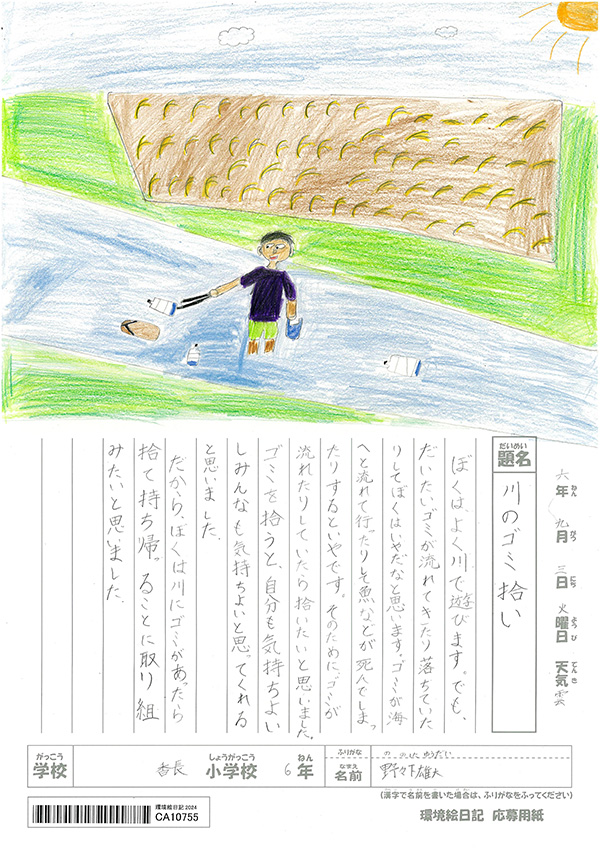 六年 九月 三日 火曜日 天気 雲
ねん がつ にち ようび てんき
だいめい
題名
川のゴミ拾い
ぼくは、よく川で遊びます。でも、
だいたいゴミが流れてきたり落ちていた
りしてぼくはいやだなと思います。ゴミが海
へと流れて行たりして魚などが死んでしまっ
たりするといやです。そのために、ゴミが
流れたりしていたら拾いたいと思いました。
ゴミを拾うと、自分も気持ちよい
しみんなも気持ちよいと思ってくれる
と思いました。
だから、ぼくは川にゴミがあったら
拾て持ち帰。ることに取り組
みたいと思いました。
がっこう
学校
しょうがっこう ねん
香長 小学校 6年
ふりがな
なまえ
名前
野々下雄大
(漢字で名前を書いた場合は、ふりがなをふってください)
環境絵日記 2024
CA10755
環境絵日記 応募用紙